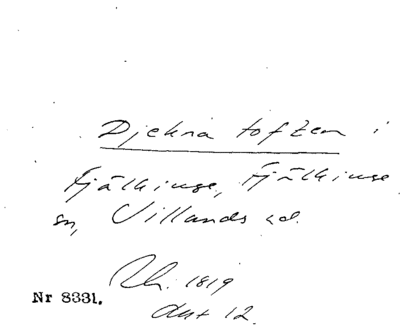 Djekna toften i
Fjälkinge, Fjälkinge
sn, Villands hd.
Rh. 1819
Nr 8331.
akt 12.